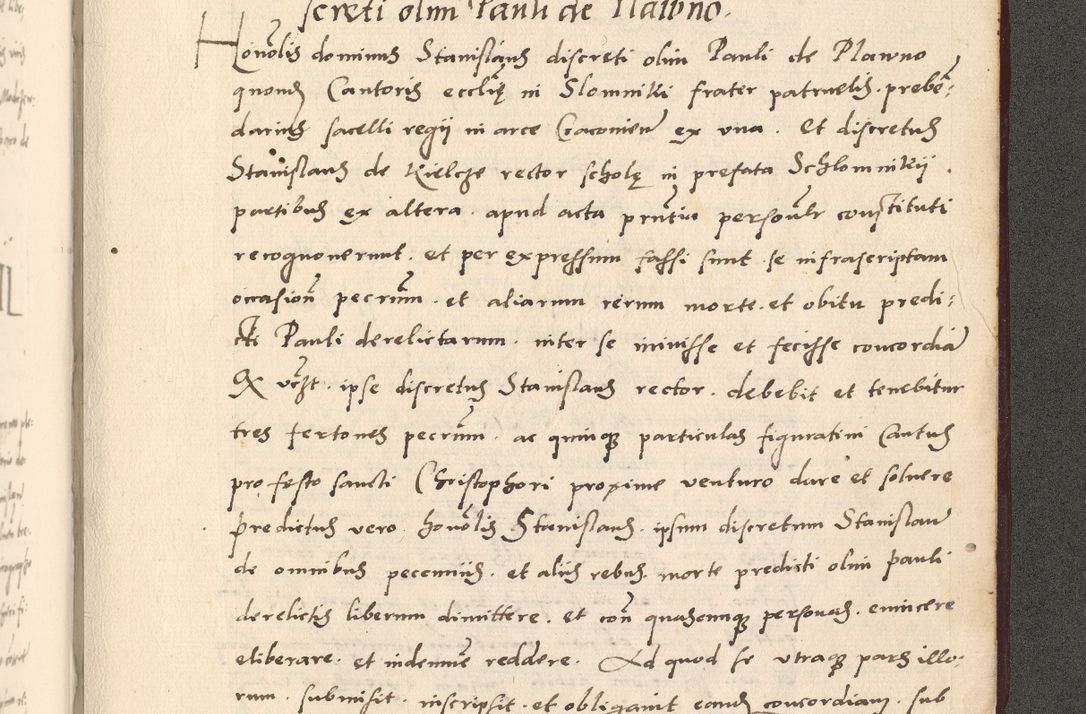 screti olim Pauli de Plawno.
Honorlis dominus Stanislaus discreti olim Pauli de Plawno
quondam Cantoris ecclię in Slomniki frater patruelis. preben:
darius sacelli regij in arce Cracovien ex una. Et discretus
Stanislaus de Kielcze rector scholę in prefata Schlomnikij
partibus ex altera. apud acta pręntia personlr constituti
recognoverunt. et per expressum fassi sunt. se infrascriptam
occasion pecuniarum. et aliarum rerum morte. et obitu predi:
cti Pauli derelictarum. inter se inivisse et fecisse concordia
Q vrzt. ipse discretus Stanislaus rector. debebit et tenebitur
tres fertones pecuniarum. ac quinque particulas figurativi Cantus
pro festo sancti Christophori proxime venturo dare et solvere
predictus vero honorlis Stanislaus. ipsum discretum Stanislau
de omnibus pecuniis. et aliis rebus. morte predicti olim Pauli
derelictis liberum dimittere. et con quascumque personas. evincere
eliberare. et indemne reddere. Ad quod se utraque pars illo:
rum. submisit. inscripsit. et obligavit eandem concordiam. sub